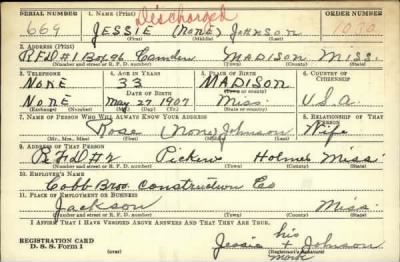 SERIAL NUMBER 1. NAME (Print) Discharged ORDER NUMBER
669 JESSIE (NONE) JOHNSON 1070
(First) (Middle) (Last)
2. ADDRESS (Print)
RFD#1 Box 96 Camden MADISON MISS.
(Number and street or R. F. D. number) (Town) (County) (State)
3. TELEPHONE 4. AGE IN YEARS 5. PLACE OF BIRTH 6. COUNTRY OF CITIZENSHIP
NONE 33 MADISON
DATE OF BIRTH (Town or county)
NONE May 27 1907 Miss. U.S.A.
(Exchange) (Number) (Mo.) (Day) (Yr.) (State or country)
7. NAME OF PERSON WHO WILL ALWAYS KNOW YOUR ADDRESS 8. RELATIONSHIP OF THAT PERSON
Rose (None) Johnson Wife
(Mr., Mrs., Miss) (First) (Middle) (Last)
9. ADDRESS OF THAT PERSON
RFD#2 Pickins Holmes Miss.
(Number and street or R. F. D. number) (Town) (County) (State)
10. EMPLOYER'S NAME
Cobb Bros. Construction Co
11. PLACE OF EMPLOYMENT OR BUSINESS
Jackson Miss.
(Number and street or R. F. D. number) (Town) (County) (State)
I AFFIRM THAT I HAVE VERIFIED ABOVE ANSWERS AND THAT THEY ARE TRUE.
REGISTRATION CARD his
D. S. S. Form 1 (over) Jessie + Johnson
(Registrant's signature)
mark